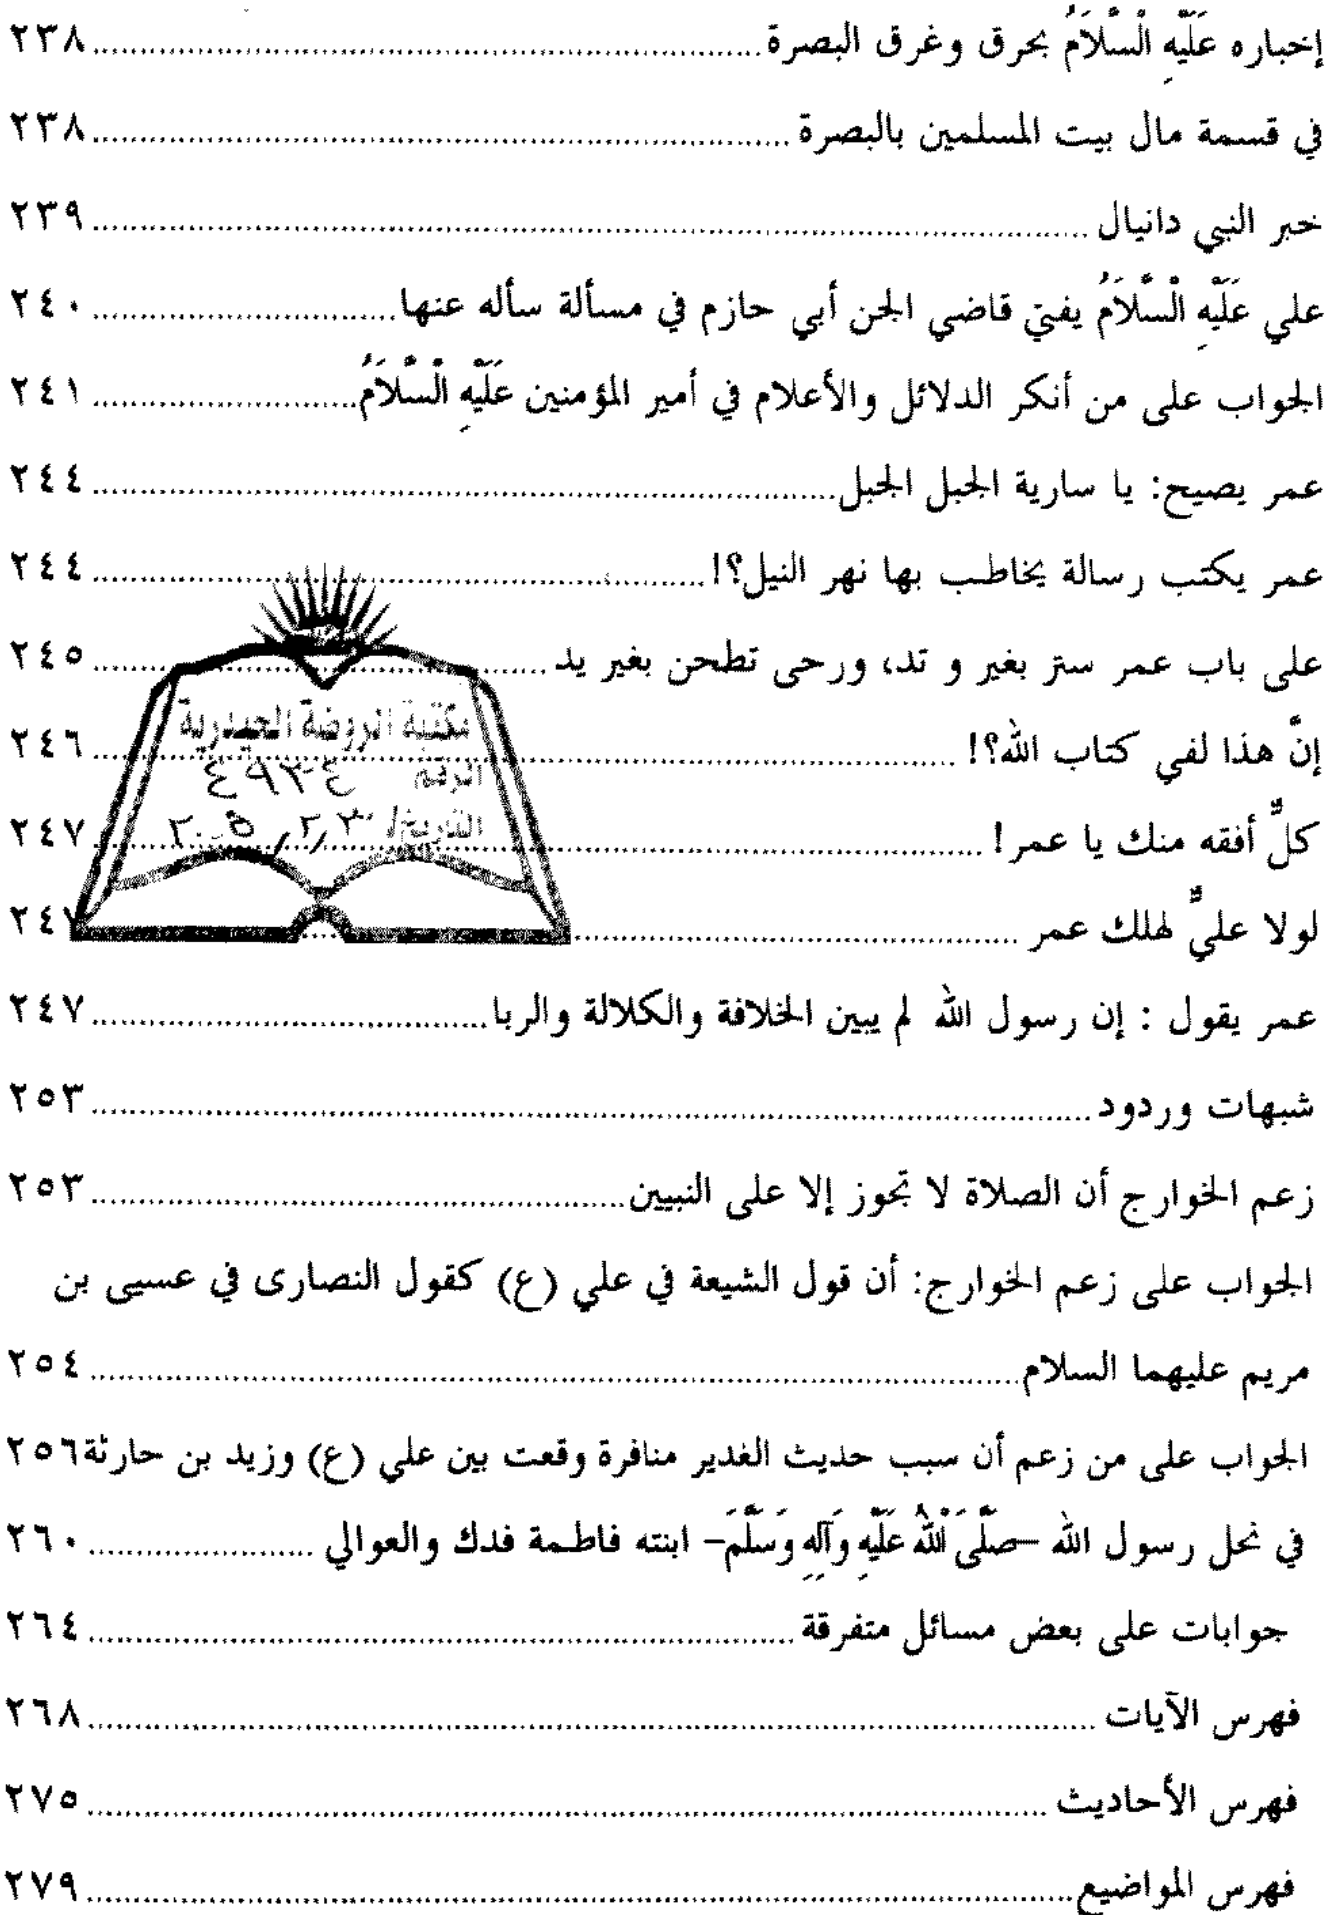 إخباره عَلَيْهِ الْسَّلَامُ بحرق وغرق البصرة ٢٣٨
في قسمة مال بيت المسلمين بالبصرة ٢٣٨
خبر النبي دانيال ٢٣٩
علي عَلَيْهِ الْسَّلَامُ يفتي قاضي الجن أبي حازم في مسألة سأله عنها ٢٤٠
الجواب على من أنكر الدلائل والأعلام في أمير المؤمنين عَلَيْهِ الْسَّلَامُ ٢٤١
عمر يصيح: يا سارية الجبل الجبل ٢٤٤
عمر يكتب رسالة يخاطب بها نهر النيل؟! ٢٤٤
على باب عمر ستر بغير و تد، ورحى تطحن بغير يد ٢٤٥
مكتبة الروضة الحيدرية
إنّ هذا لفي كتاب الله؟! ٢٤٦
الرقم ٤٩٣٤
كلٌّ أفقه منك يا عمر! ٢٤٧
التاريخ
لولا عليٌّ لهلك عمر ٢٤٧
عمر يقول : إن رسول الله لم يبين الخلافة والكلالة والربا ٢٤٧
شبهات وردود ٢٥٣
زعم الخوارج أن الصلاة لا تجوز إلا على النبيين ٢٥٣
الجواب على زعم الخوارج: أن قول الشيعة في علي (ع) كقول النصارى في عسيى بن
مريم عليهما السلام ٢٥٤
الجواب على من زعم أن سبب حديث الغدير منافرة وقعت بين علي (ع) وزيد بن حارثة ٢٥٦
في نحل رسول الله –صَلَّى اْللهُ عَلَيْهِ وَآلِهِ وَسَلَّمَ– ابنته فاطمة فدك والعوالي ٢٦٠
جوابات على بعض مسائل متفرقة ٢٦٤
فهرس الآيات ٢٦٨
فهرس الأحاديث ٢٧٥
فهرس المواضيع ٢٧٩